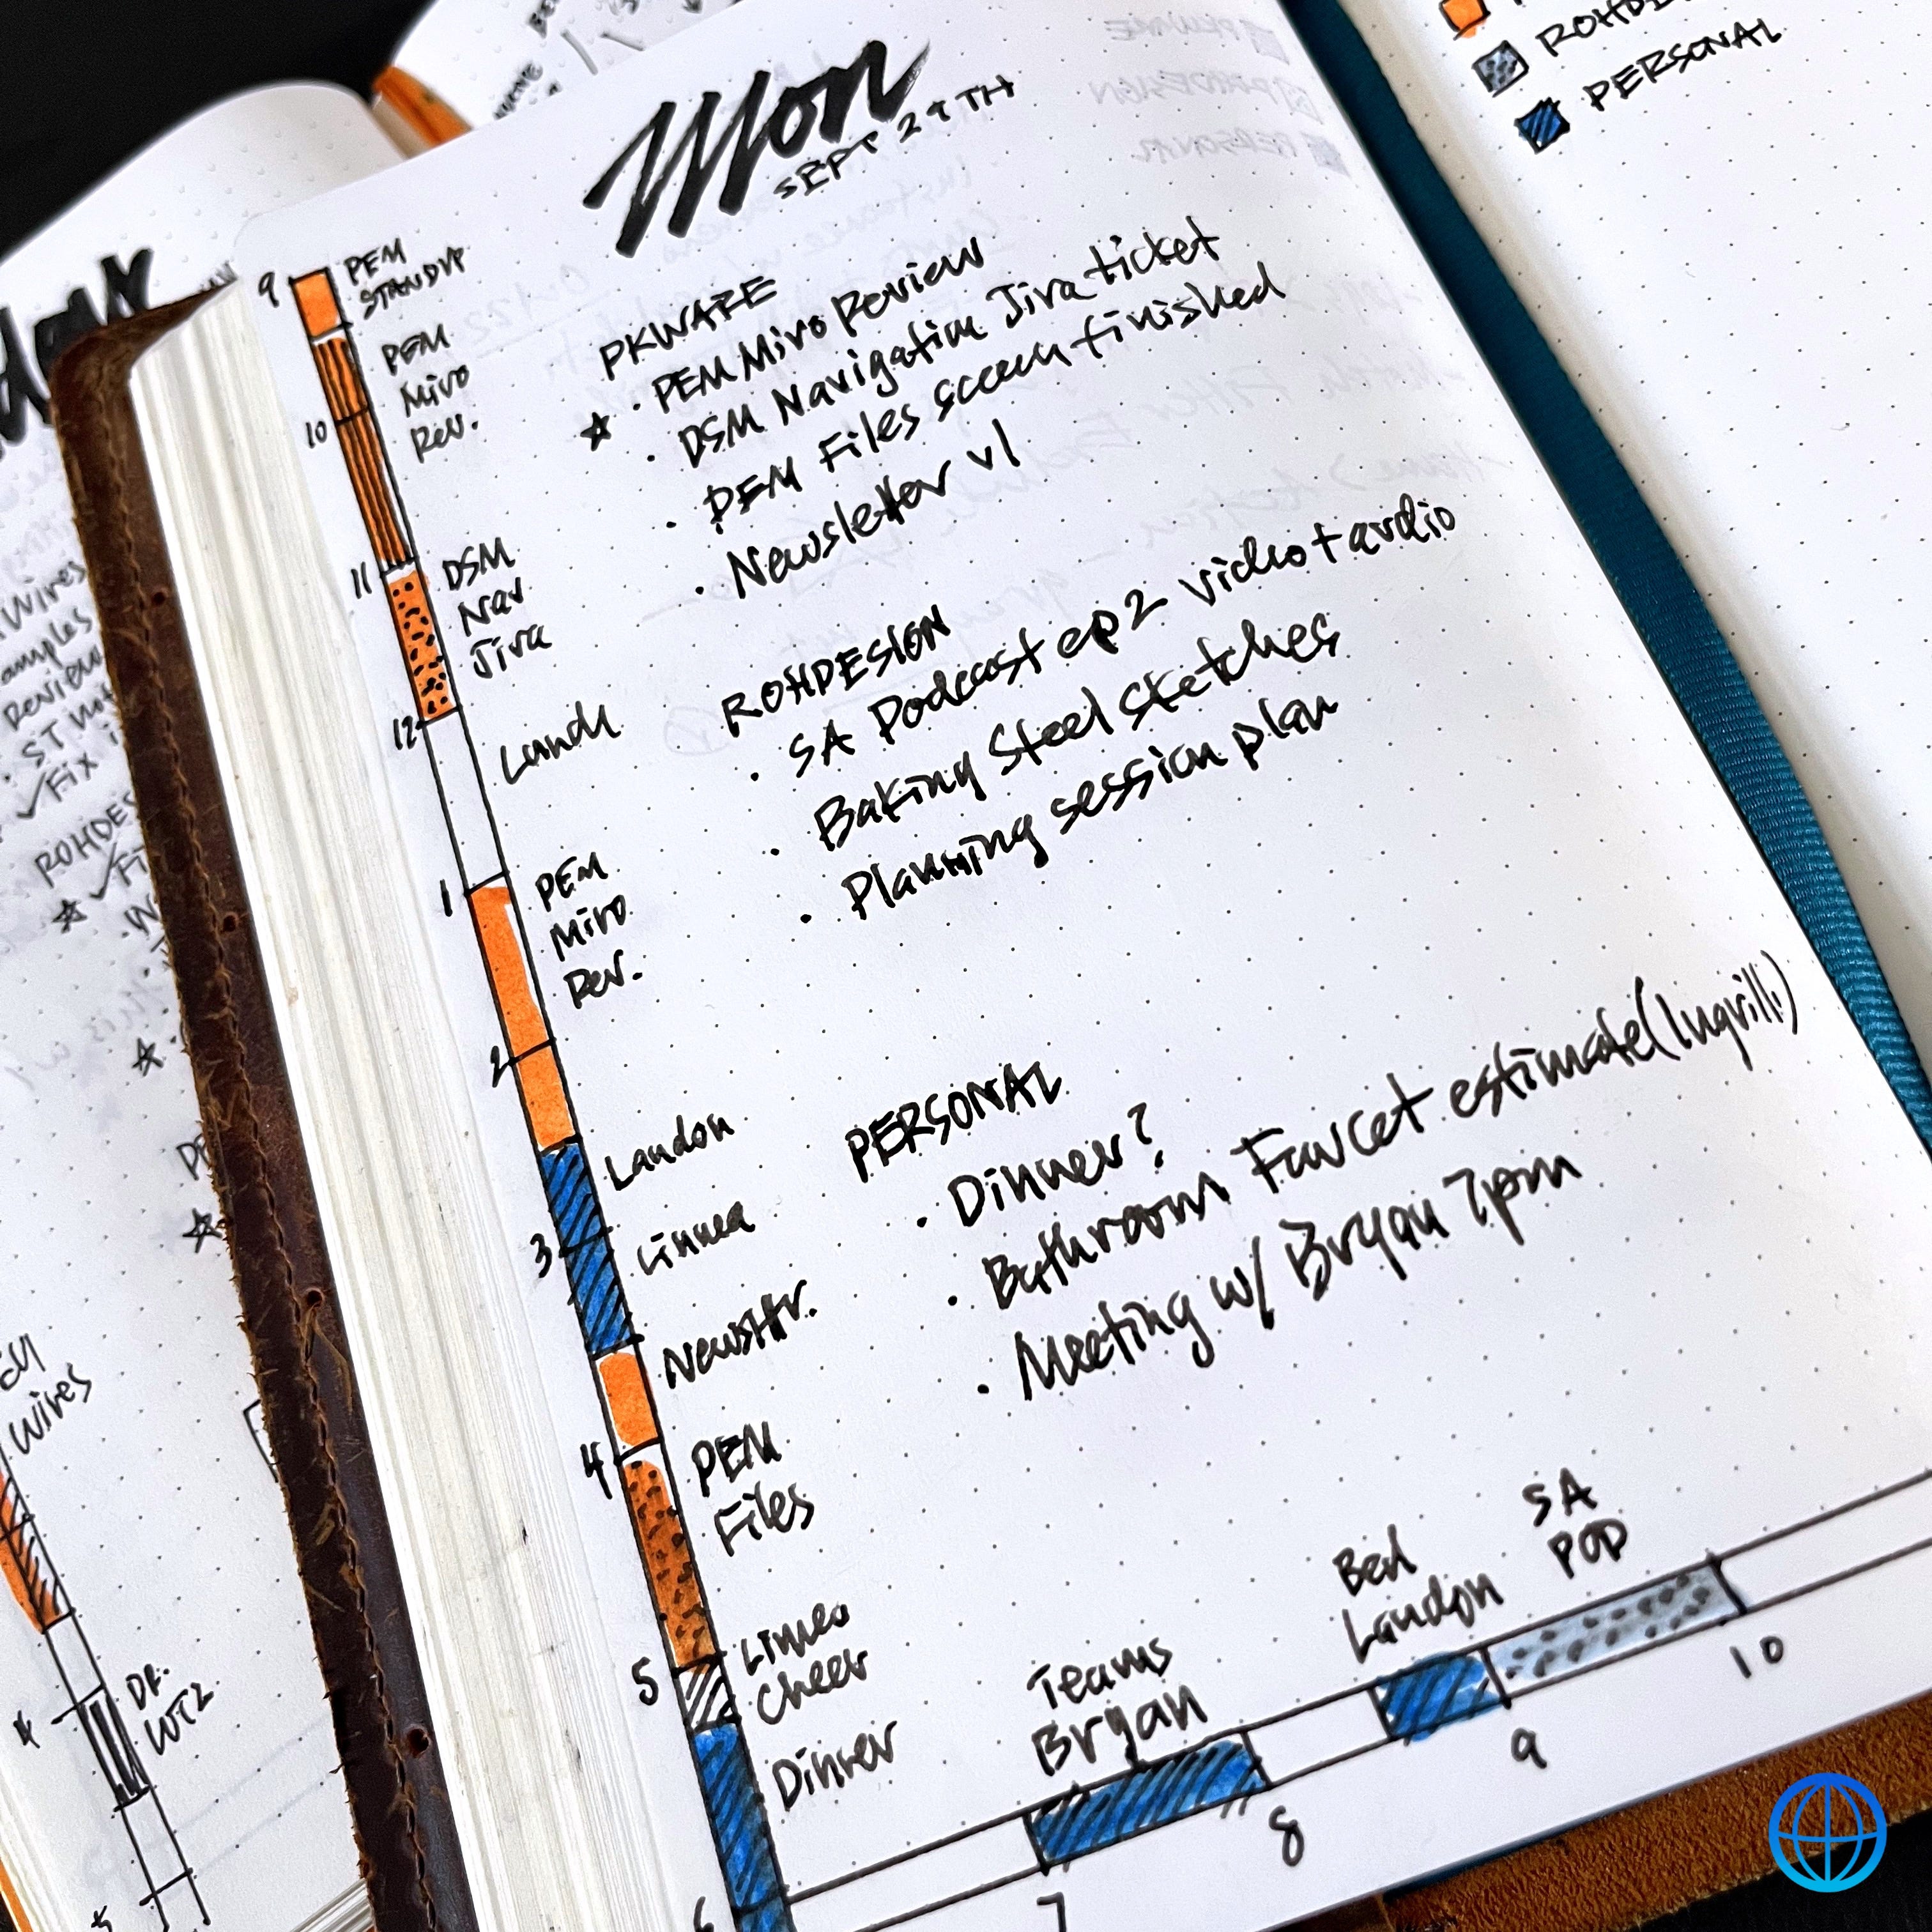 Mon
SEPT 29TH
9
PEM
STANDUP
PEM
Miro
Rev.
10
11
DSM
Nav
Jira
12
Lunch
1
PEM
Miro
Rev.
2
Landon
3
Linnea
Newsltr.
4
PEM
Files
5
Linea
Cheer
Dinner
6
PKWARE
☆ · PEM Miro Review
· DSM Navigation Jira ticket
· PEM Files screen finished
· Newsletter v1
ROHDESIGN
· SA Podcast ep 2 video + audio
· Baking Steel sketches
· Planning session plan
PERSONAL
· Dinner?
· Bathroom Faucet estimate
· Meeting w/ Bryan 7pm
Teams
Bryan
Bed
Landon
SA
POD
7
8
9
10
PERSONAL
Wires
Review
✓Fix
Wires
4
DF.
WT2
5